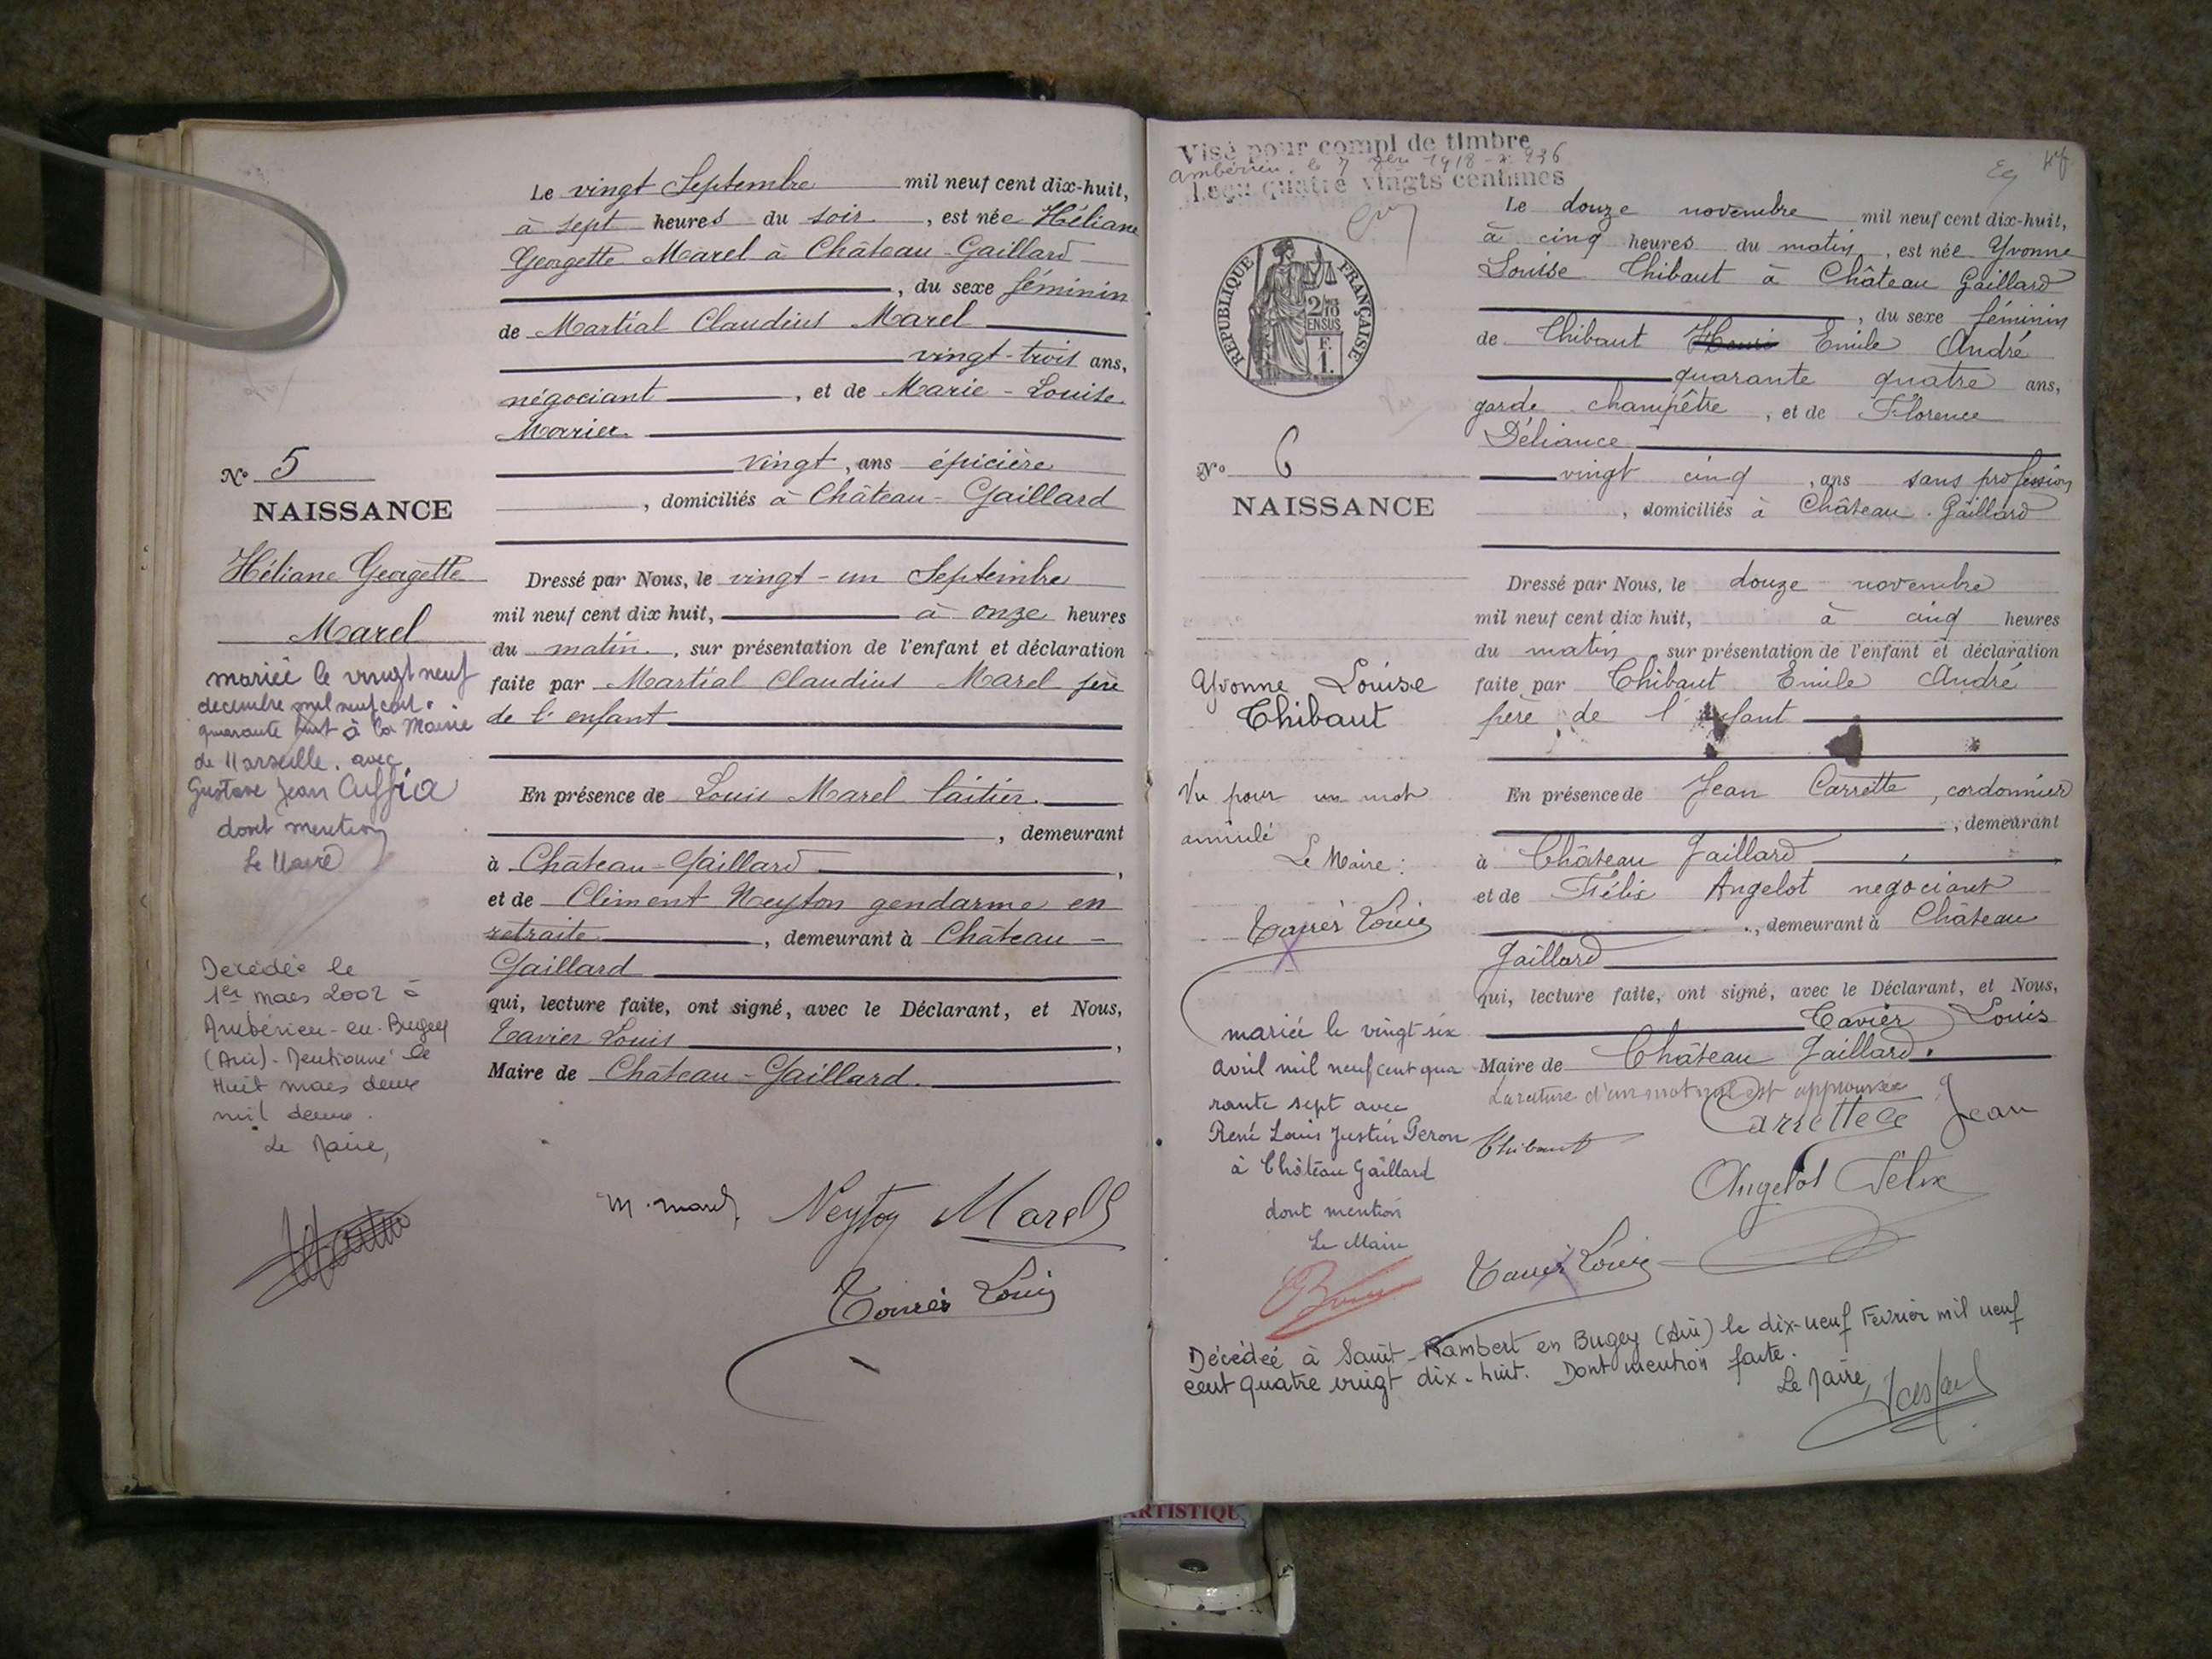 Le vingt Septembre mil neuf cent dix-huit,
à sept heures du soir, est née Héliane
Georgette Marel à Château-Gaillard
, du sexe féminin
de Martial Claudius Marel
vingt-trois ans,
négociant, et de Marie-Louise
vingt, ans épicière
, domiciliés à Château-Gaillard
N° 5
NAISSANCE
Héliane Georgette
Marel
Dressé par Nous, le vingt-un Septembre
mil neuf cent dix huit, à onze heures
du matin, sur présentation de l'enfant et déclaration
faite par Martial Claudius Marel père
de l'enfant
En présence de Louis Marel laitier
, demeurant
à Château-Gaillard,
et de Climent Neyton gendarme en
retraite, demeurant à Château-
Gaillard
qui, lecture faite, ont signé, avec le Déclarant, et Nous,
Tavier Louis,
Maire de Château-Gaillard.
mariée le vingt neuf
decembre mil neuf cent
quarante huit à la Mairie
de Marseille. avec
Gustave Jean
dont mention
Le Maire
Décédée le
1er mars 2002 à
Ambérieu-en-Bugey
(Ain). Mentionné le
Huit mars deux
mil deux.
Le Maire,
M. Marel Neyton Marel
Louis
Visé pour compl de timbre
Ambérieu, le 7 1918
Reçu quatre vingts centimes
RÉPUBLIQUE FRANÇAISE
2/10
EN SUS
F.
1.
Le douze novembre mil neuf cent dix-huit,
à cinq heures du matin, est née Yvonne
Louise Thibaut à Château Gaillard
, du sexe féminin
de Thibaut Henri Emile André
quarante quatre ans,
garde champêtre, et de Florence
Déliance
vingt cinq, ans sans profession
, domiciliés à Château-Gaillard
N° 6
NAISSANCE
Yvonne Louise
Thibaut
Dressé par Nous, le douze novembre
mil neuf cent dix huit, à cinq heures
du matin, sur présentation de l'enfant et déclaration
faite par Thibaut Emile André
père de l'enfant
En présence de Jean Carrette, cordonnier
, demeurant
à Château Gaillard,
et de Félix Angelot negociant
, demeurant à Château
Gaillard
qui, lecture faite, ont signé, avec le Déclarant, et Nous,
Tavier Louis
Maire de Château Gaillard.
La rature d'un mot nul est approuvée
Vu pour un mot
annulé
Le Maire:
Louis
mariée le vingt-six
avril mil neuf cent qua
rante sept avec
René Louis Justin Peron
à Château Gaillard
dont mention
Le Maire
Thibaut
Jean
Angelot Félix
Louis
Décédée à Saint-Rambert en Bugey (Ain) le dix-neuf Février mil neuf
cent quatre vingt dix-huit. Dont mention faite.
Le Maire,
ARTISTIQU